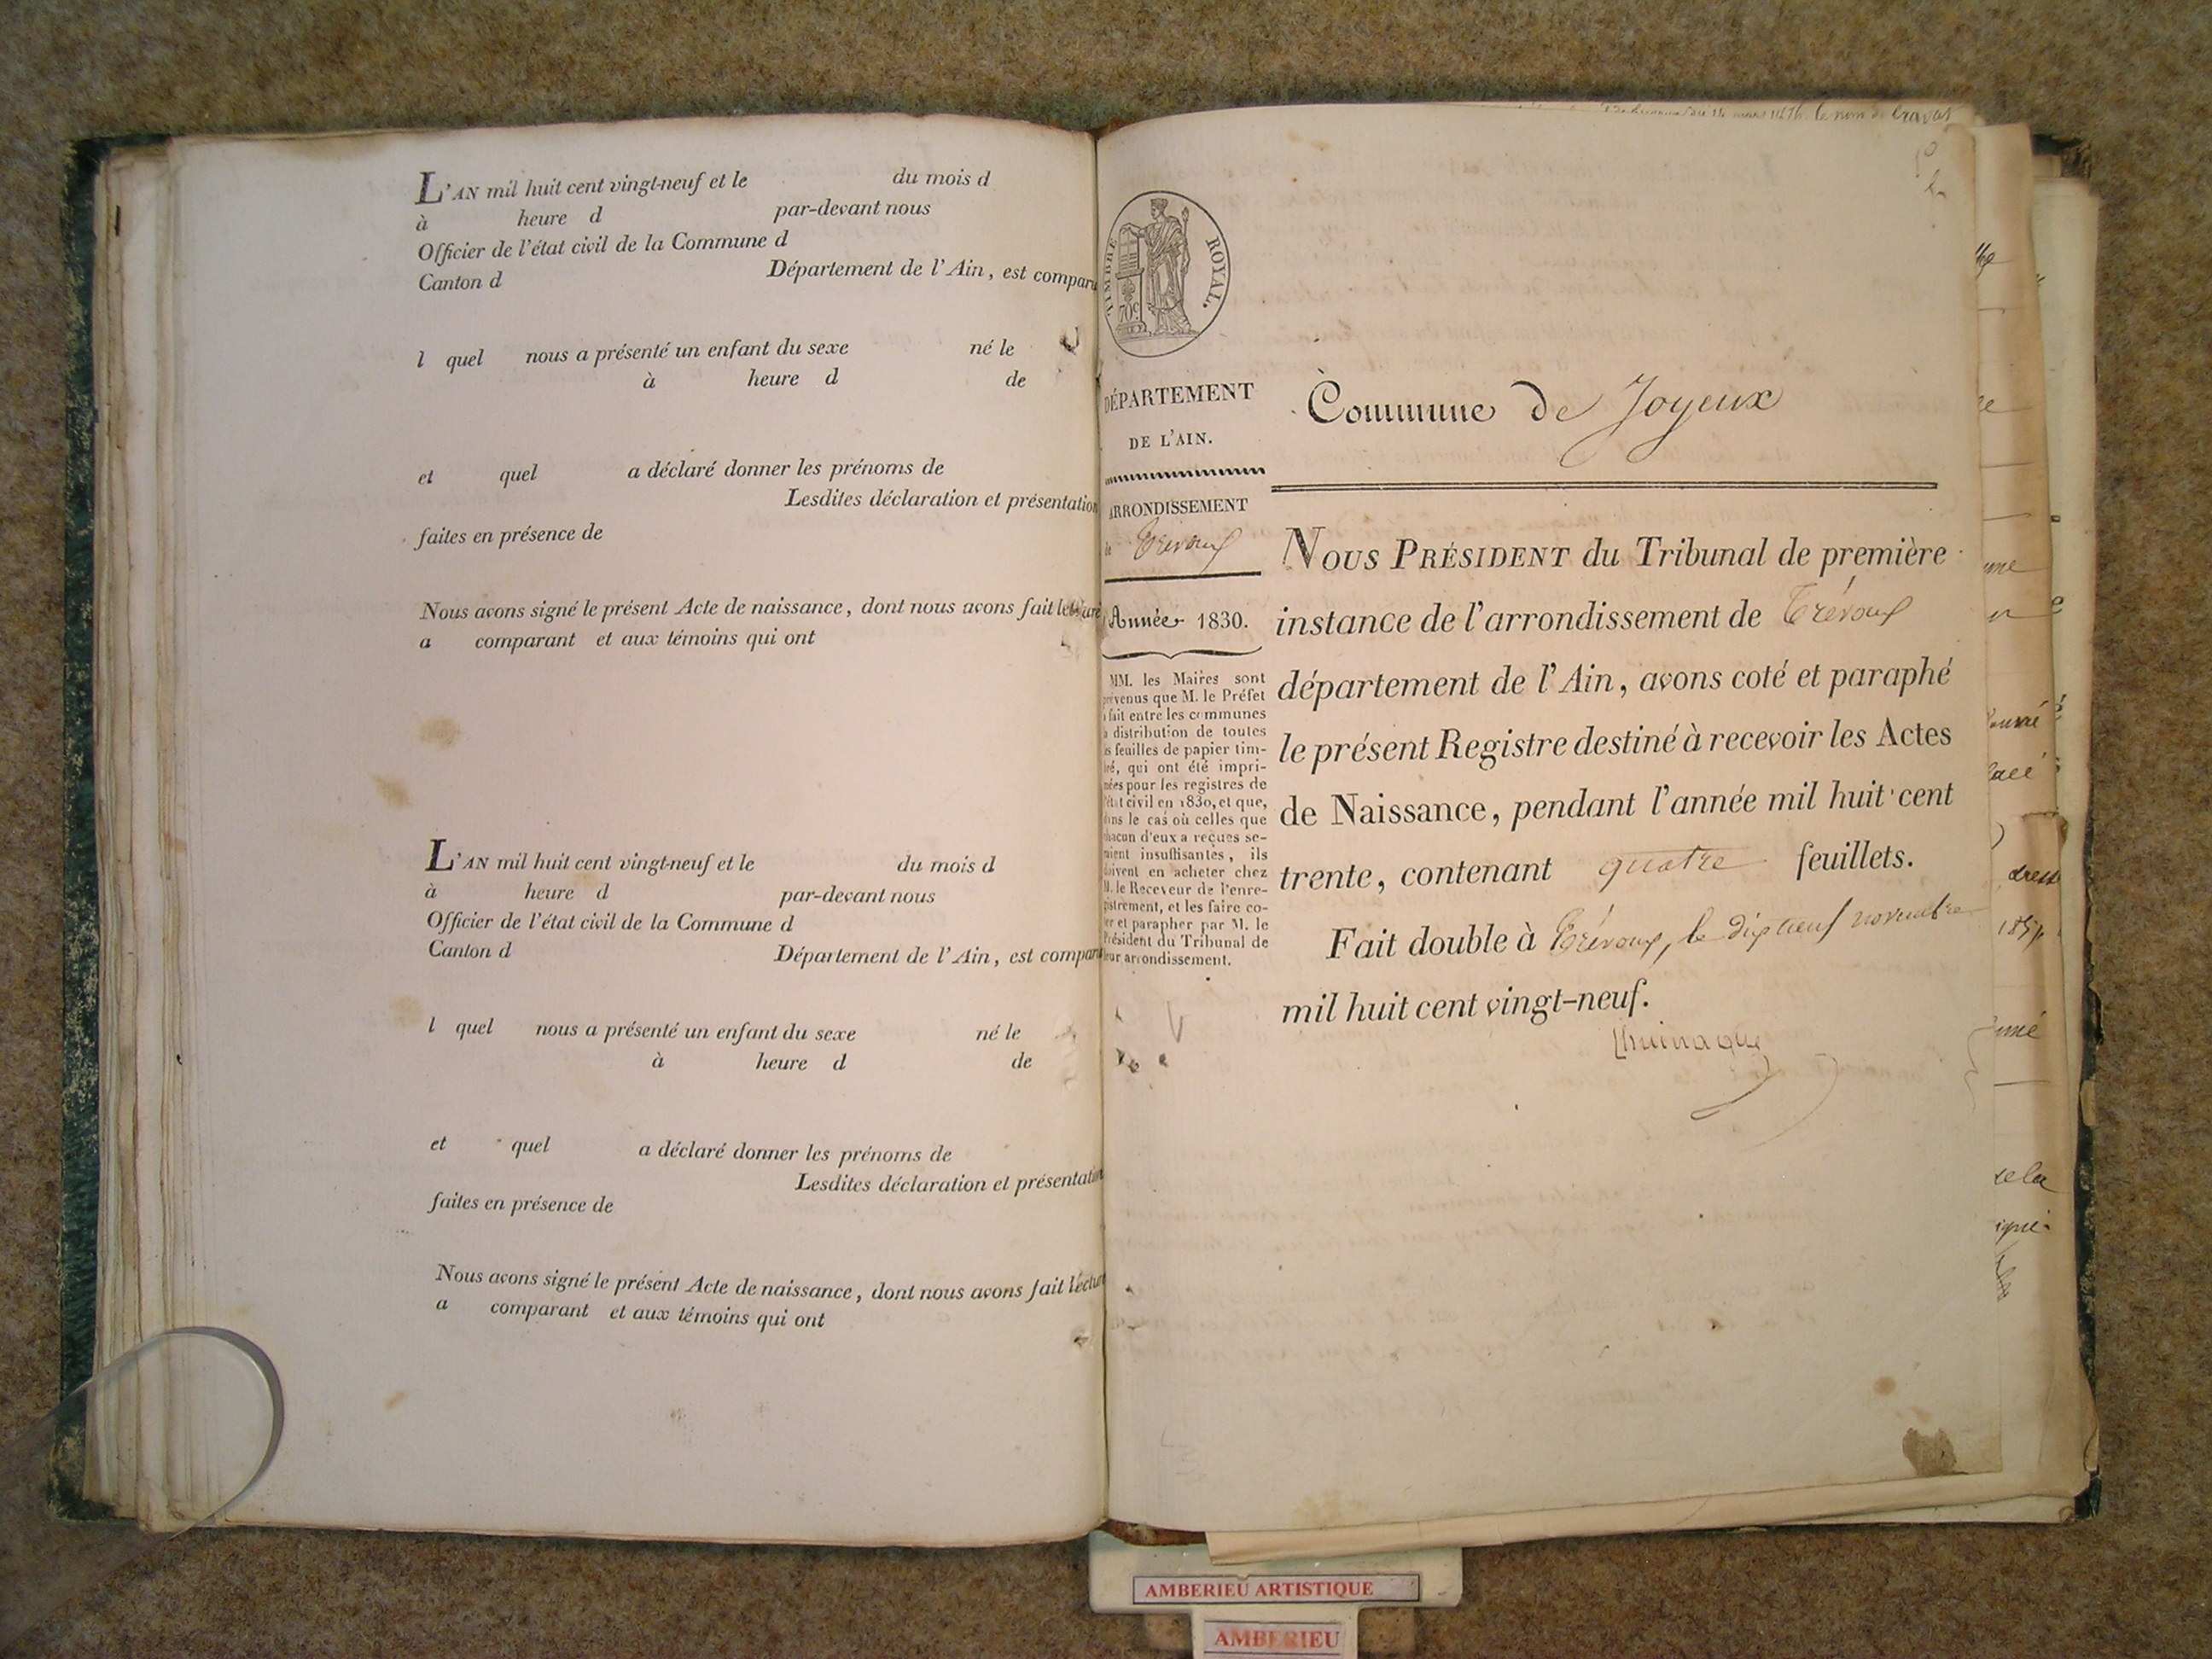 L'AN mil huit cent vingt-neuf et le du mois d
à heure d par-devant nous
Officier de l'état civil de la Commune d
Canton d Département de l'Ain, est comparu
l quel nous a présenté un enfant du sexe né le
à heure d de
et quel a déclaré donner les prénoms de
Lesdites déclaration et présentation
faites en présence de
Nous avons signé le présent Acte de naissance, dont nous avons fait lecture
a comparant et aux témoins qui ont
L'AN mil huit cent vingt-neuf et le du mois d
à heure d par-devant nous
Officier de l'état civil de la Commune d
Canton d Département de l'Ain, est compar
l quel nous a présenté un enfant du sexe né le
à heure d de
et quel a déclaré donner les prénoms de
Lesdites déclaration et présentation
faites en présence de
Nous avons signé le présent Acte de naissance, dont nous avons fait lectur
a comparant et aux témoins qui ont
le nom de
TIMBRE ROYAL.
70c
DÉPARTEMENT
DE L'AIN.
ARRONDISSEMENT
de Trévoux
Année 1830.
MM. les Maires sont
prévenus que M. le Préfet
a fait entre les communes
la distribution de toutes
les feuilles de papier tim-
bré, qui ont été impri-
mées pour les registres de
l'état civil en 1830, et que,
dans le cas où celles que
chacun d'eux a reçues se-
raient insuffisantes, ils
doivent en acheter chez
M. le Receveur de l'enre-
gistrement, et les faire co-
ter et parapher par M. le
Président du Tribunal de
leur arrondissement.
Commune de Joyeux
NOUS PRÉSIDENT du Tribunal de première
instance de l'arrondissement de Trévoux
département de l'Ain, avons coté et paraphé
le présent Registre destiné à recevoir les Actes
de Naissance, pendant l'année mil huit cent
trente, contenant quatre feuillets.
Fait double à Trévoux, le dix neuf novembre
mil huit cent vingt-neuf.
AMBERIEU ARTISTIQUE
AMBERIEU